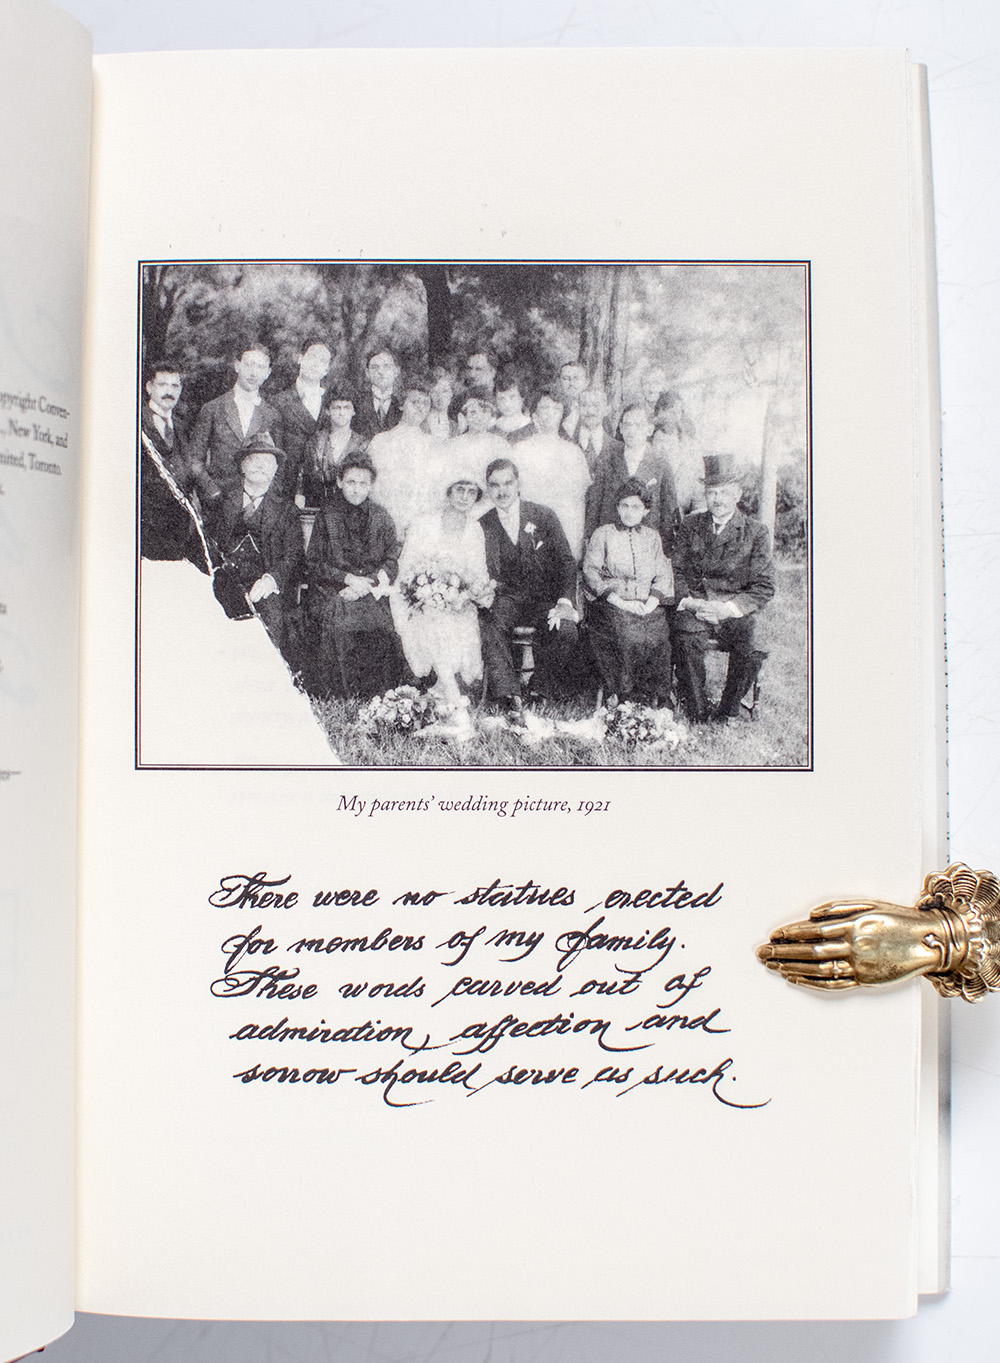 opyright Conven-
New York, and
mited, Toronto.
My parents' wedding picture, 1921
There were no statues erected
for members of my family.
These words carved out of
admiration, affection and
sorrow should serve as such.